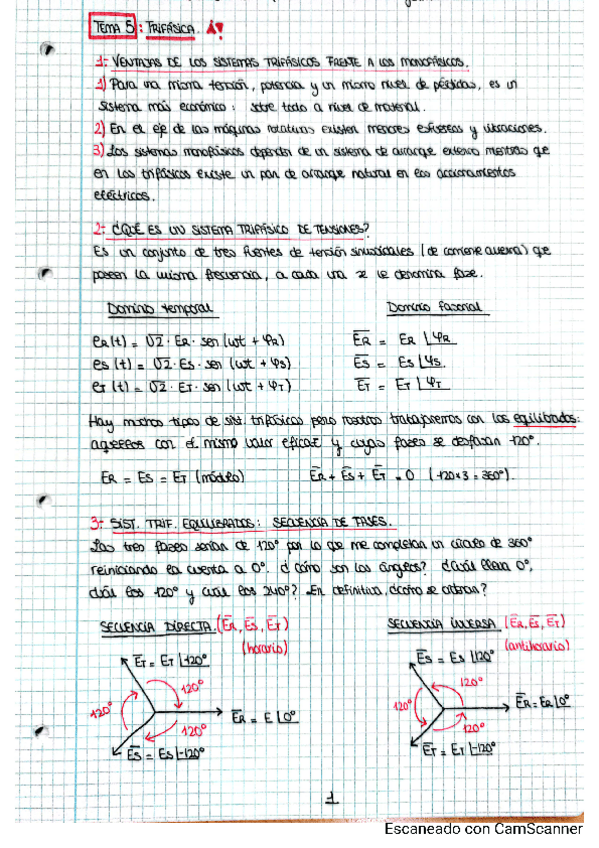 TEMA 5: TRIFÁSICA.
1- VENTAJAS DE LOS SISTEMAS TRIFÁSICOS FRENTE A LOS MONOFÁSICOS.
1) Para una misma tensión, potencia y un mismo nivel de pérdidas, es un
sistema más económico: sobre todo a nivel de material.
2) En el eje de las máquinas rotativas existen menores esfuerzos y vibraciones.
3) Los sistemas monofásicos dependen de un sistema de arranque externo mientras que
en los trifásicos existe un par de arranque natural en los accionamientos
eléctricos.
2- ¿QUÉ ES UN SISTEMA TRIFÁSICO DE TENSIONES?
Es un conjunto de tres fuentes de tensión sinusoidales (de corriente alterna) que
poseen la misma frecuencia, a cada una se le denomina fase.
Dominio temporal Dominio fasorial
eR(t) = √2 · ER · sen (ωt + φR) E̅R = ER ∟φR
es(t) = √2 · Es · sen (ωt + φs) E̅s = Es ∟φs
eT(t) = √2 · ET · sen (ωt + φT) E̅T = ET ∟φT
Hay muchos tipos de sist. trifásicos pero nosotros trabajaremos con los equilibrados:
aquellos con el mismo valor eficaz y cuyas fases se desfasan 120°.
ER = Es = ET (módulo) E̅R + E̅s + E̅T = 0 (120×3 = 360°).
3- SIST. TRIF. EQUILIBRADOS: SECUENCIA DE FASES.
Las tres fases serían de 120° por lo que me completan un círculo de 360°
reiniciando la cuenta a 0°. ¿Cómo son los ángulos? ¿Cuál lleva 0°,
cuál los 120° y cuál los 240°? En definitiva, ¿cómo se ordenan?
SECUENCIA DIRECTA. (E̅R, E̅s, E̅T) SECUENCIA INVERSA (E̅R, E̅s, E̅T)
(horario) (antihorario)
E̅T = ET ∟120° E̅s = Es ∟120°
120° 120°
120° E̅R = E ∟0° 120° E̅R = ER ∟0°
120° 120°
E̅s = Es ∟-120° E̅T = ET ∟-120°
1
Escaneado con CamScanner